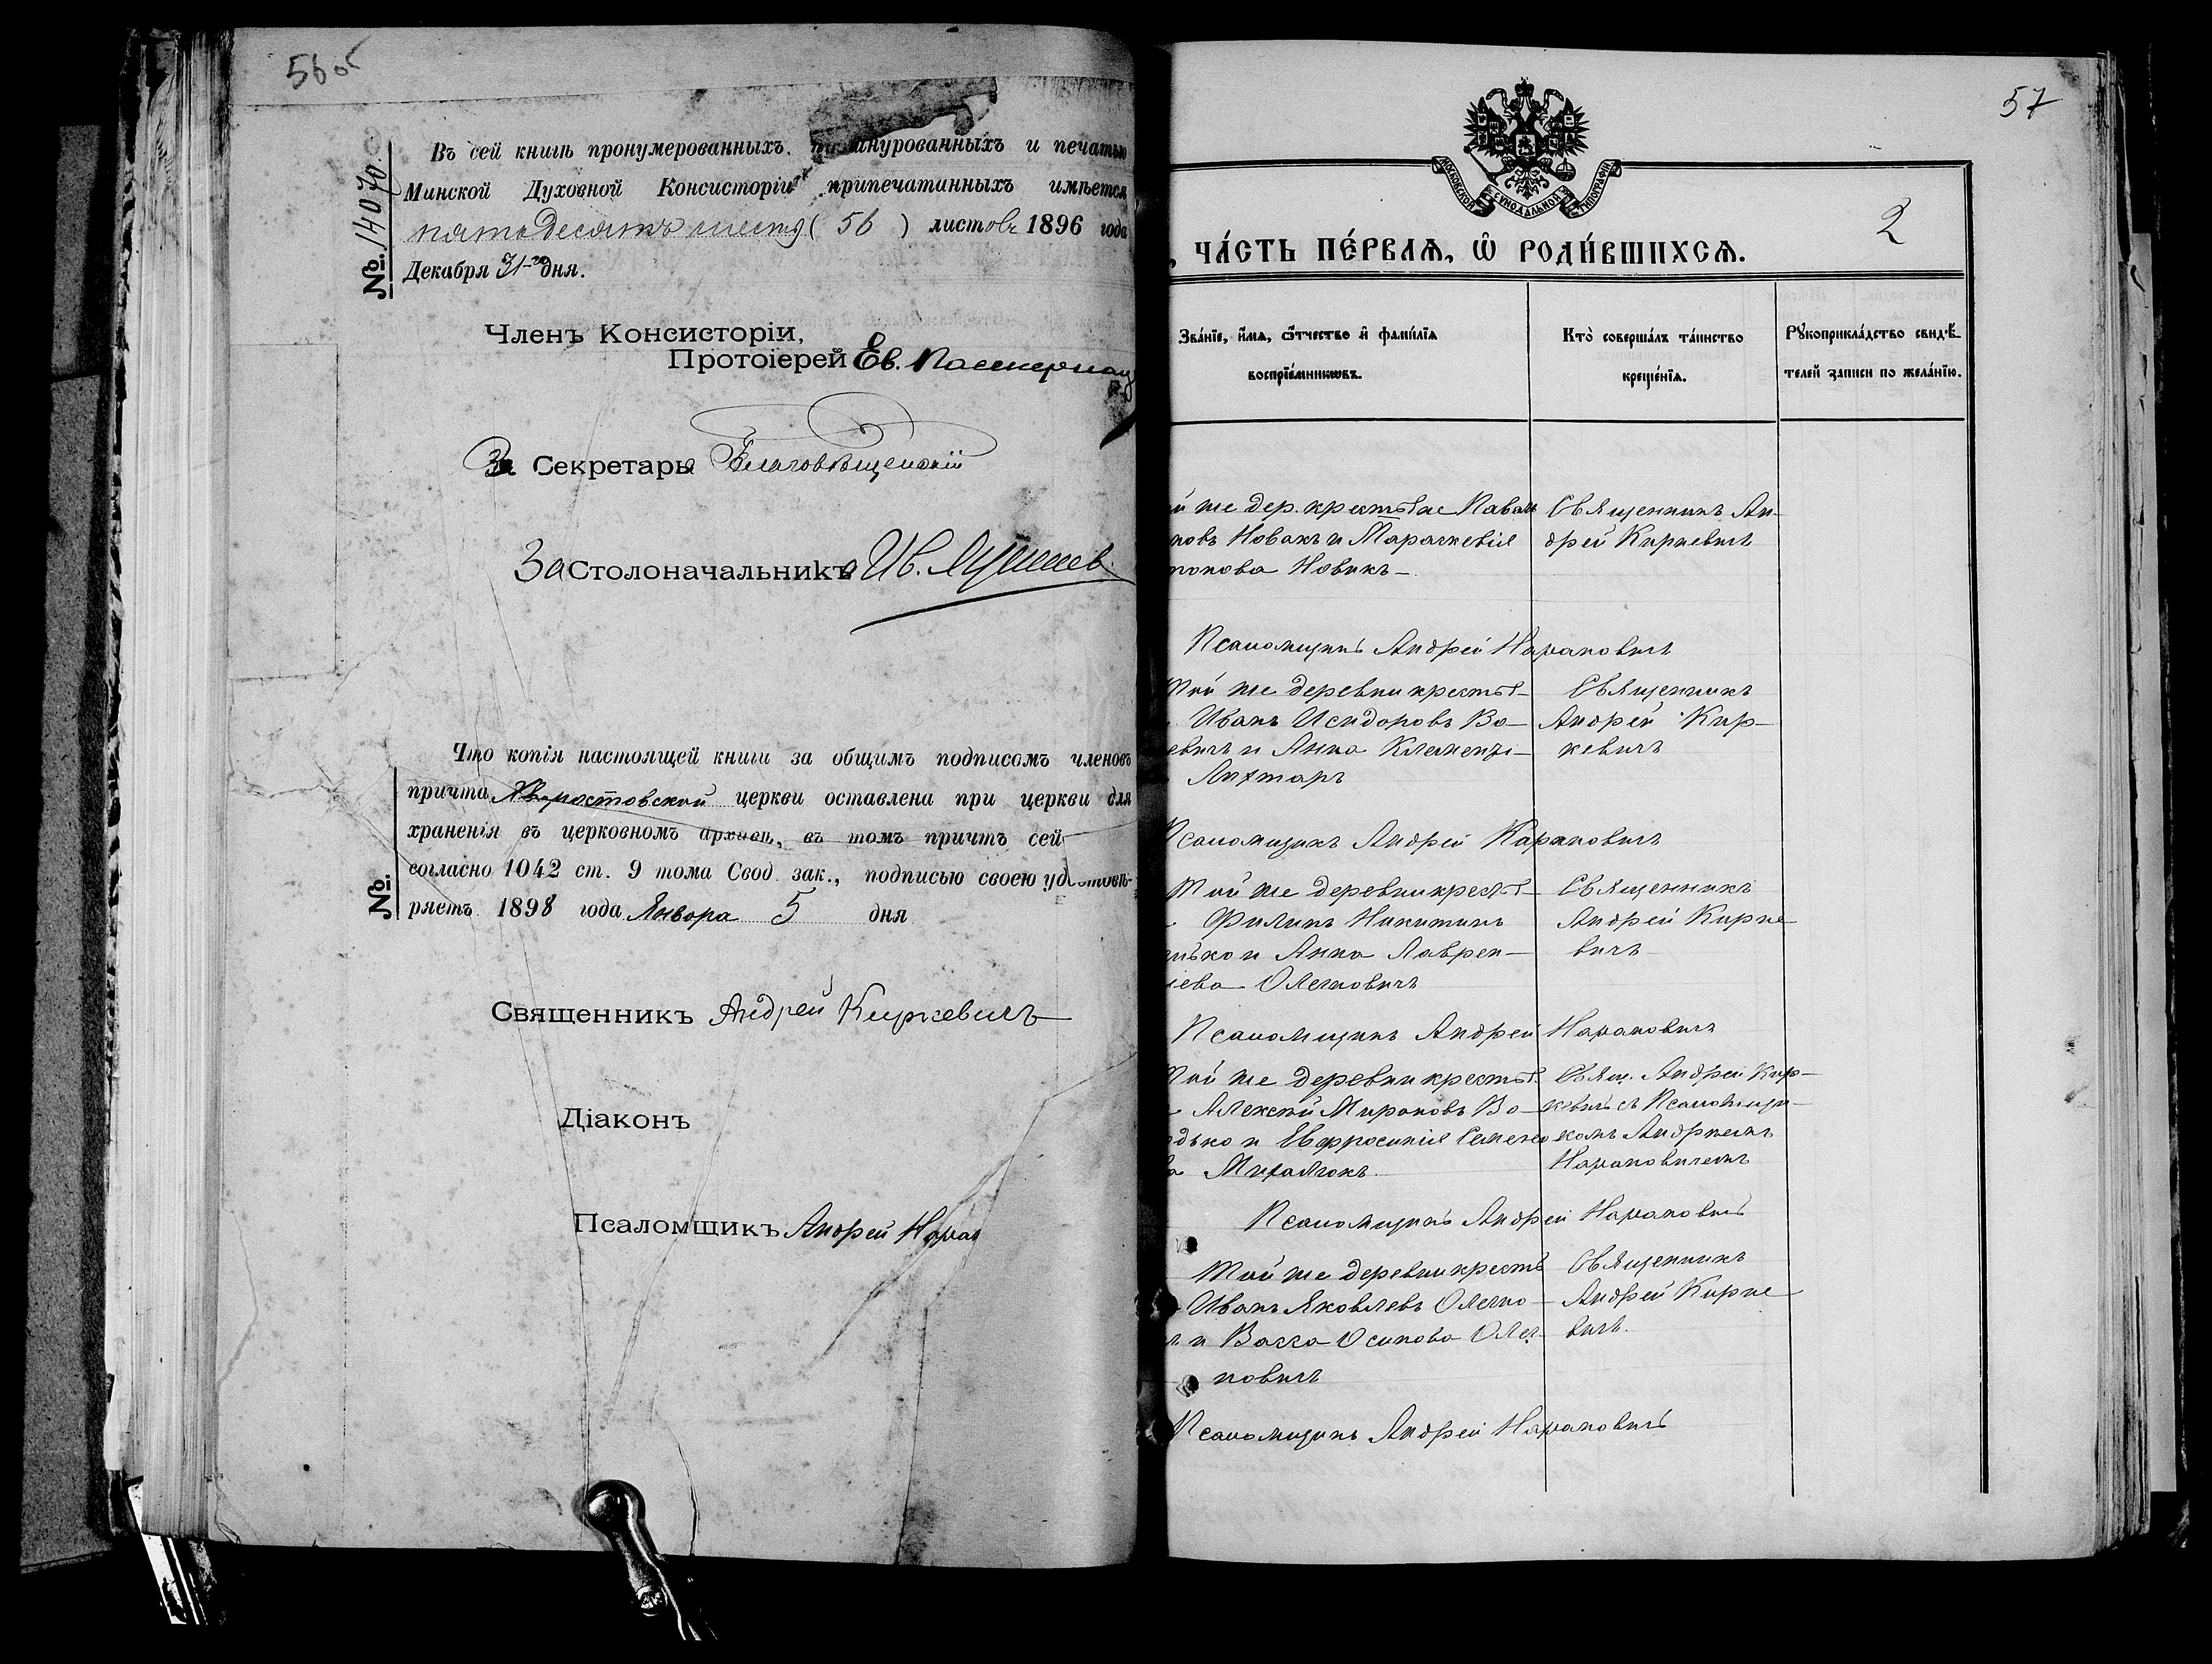 56 об
Въ сей книгѣ пронумерованныхъ, прошнурованныхъ и печатью
Минской Духовной Консисторіи припечатанныхъ имѣется
пятьдесятъ шесть ( 56 ) листовъ 1896 года
Декабря 31-го дня.
№. 14070.
Членъ Консисторіи,
Протоіерей Ев.
За Секретаря Благовѣщенскій
За Столоначальника Ив.
Что копія настоящей книги за общимъ подписомъ членовъ
причта Хворостовской церкви оставлена при церкви для
храненія въ церковномъ архивѣ, въ томъ причтъ сей
согласно 1042 ст. 9 тома Свод. зак., подписью своею удостовѣ-
ряетъ 1898 года Января 5 дня
№.
Священникъ Андрей Киркевичъ
Діаконъ
Псаломщикъ Андрей
57
МОСКОВСКОЙ СѴНОДАЛЬНОЙ ТИПОГРАФІИ
2
, ЧА́СТЬ ПЕ́РВАѦ, Ѡ҆ РОДИ́ВШИХСѦ.
Зва́нїе, и҆́мѧ, ѻ҆́тчество и҆ фами́лїѧ
воспрїе́мникѡвъ.
Кто̀ соверша́лъ та́инство
креще́нїѧ.
Рꙋкоприкла́дство свидѣ́-
телей записи по жела́нїю.
й же дер. крестьяне Павелъ
новъ Новакъ и Параскевія
Новикъ
Священникъ Ан-
дрей Киркевичъ
Псаломщикъ Андрей
Той же деревни крестья-
Иванъ Исидоровъ Во-
евичъ и Анна Клементі-
Лихтаръ
Священникъ
Андрей Кир-
кевичъ
Псаломщикъ Андрей
Той же деревни крестья-
Филипъ Никитинъ
нько и Анна Лаврен-
іева Олехновичъ
Священникъ
Андрей Кирке-
вичъ
Псаломщикъ Андрей
Той же деревни крестья-
Алексѣй Мироновъ Во-
одько и Евфросинія Семено
ва Михалюкъ
Свящ. Андрей Кир-
кевичъ съ Псаломщи-
комъ Андреемъ
Псаломщикъ Андрей
Той же деревни крестья
Иванъ Яковлевъ Олехно-
и Васса Осипова Олех-
новичъ
Священникъ
Андрей Кирке-
вичъ.
Псаломщикъ Андрей